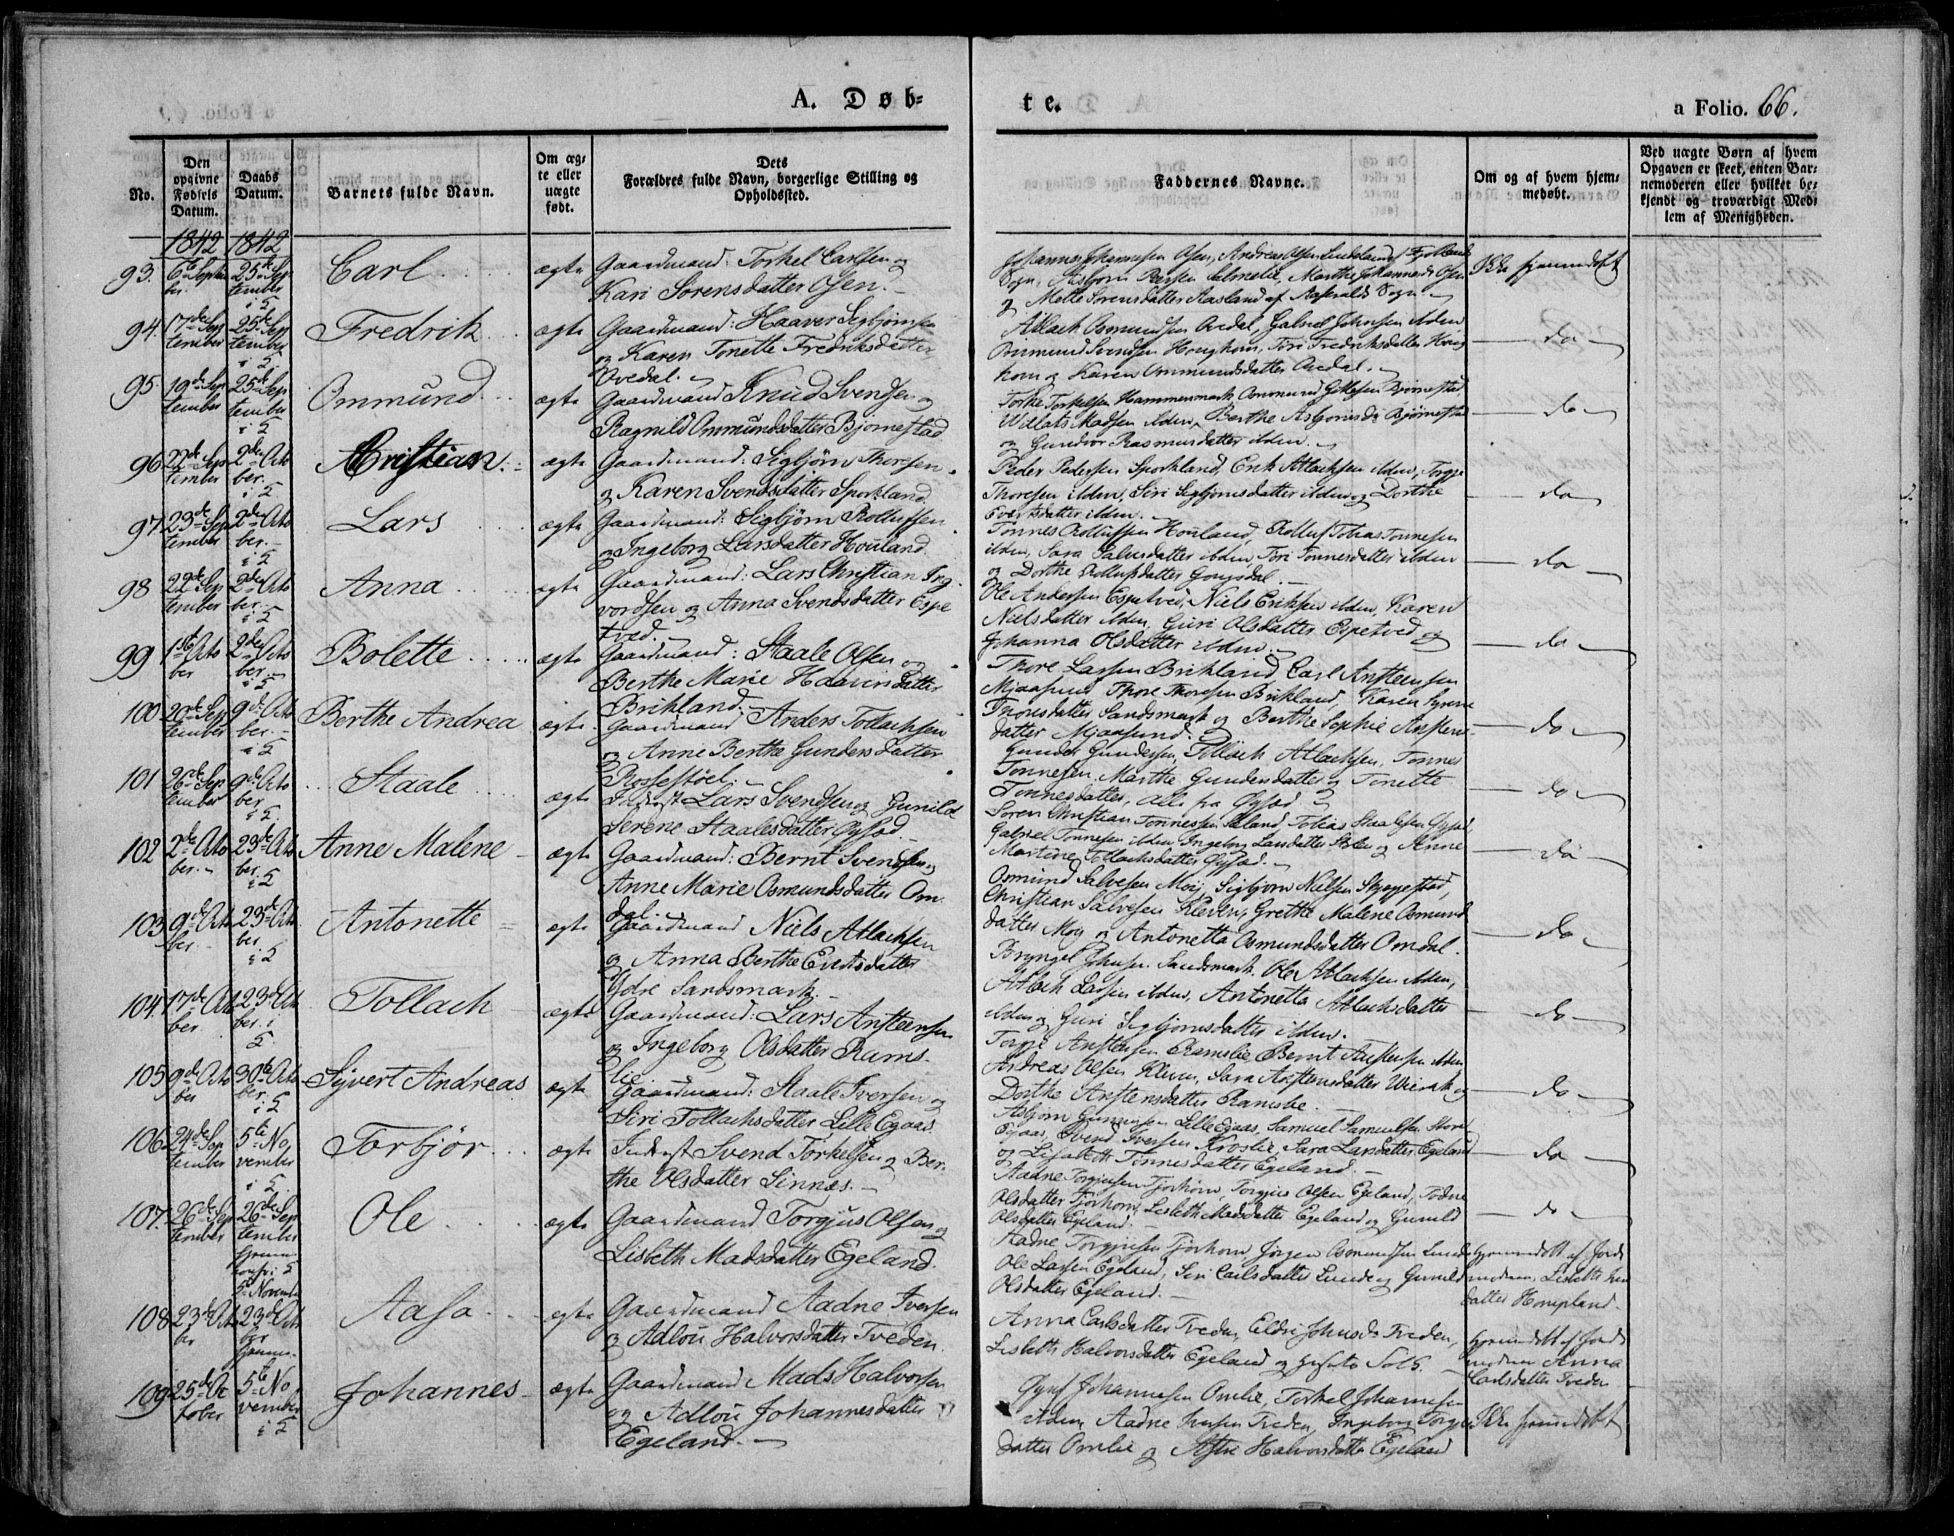 A. Døb-
te.
a Folio. 66.
No.
Den opgivne Fødsels Datum.
Daabs Datum.
Barnets fulde Navn.
Om ægte eller uægte født.
Dets Forældres fulde Navn, borgerlige Stilling og Opholdssted.
Faddernes Navne.
Om og af hvem hjemmedøbt.
Ved uægte Børn af hvem Opgaven er skeet, enten Barnemoderen eller hvilket bekjendt og troværdigt Medlem af Menigheden.
1842 1842
93. 6te Septem
ber. 25de Sep
tember
Carl ægte
Gaardmand: Torkel Carlsen og
Kari Sørensdatter Osen.
Johannes Johannesen Osen, Andreas Olsen
Sogn, Marthe Johannesd. Osen
og Mette Sørensdatter Aasland af Aaseralds Sogn.
Ikke hjemmedøbt
94. 17de Sep
tember 25de Sep
tember
Fredrik ægte
Gaardmand: Haaver Sigbjørnsen
og Karen Tonette Fredriksdatter
Ovedal.
Atlach Osmundsen Ovedal, Gabriel Johnsen ibden
Ommund Svendsen Houghom, Siri Fredriksdatter Houg
hom og Karen Ommundsdatter Ovedal.
do
95. 19de Sep
tember 25de Sep
tember
Ommund ægte
Gaardmand Knud Svendsen og
Ragnild Ommundsdatter Bjørnestad
Torkel Torkelsen Hammermark, Ommund Bjørnestad,
Willats Madsen ibden, Berthe Asbjørnsd. Bjørnestad
og Gundvor Rasmusdatter ibden.
do
96 22de Sep
tember 2den Octo
ber.
Christian ægte
Gaardmand: Sigbjørn Thoresen
og Karen Svendsdatter Sporkland
Peder Pedersen Sporkland, Erik Atlachsen ibden, Torgje
Thoresen ibden, Siri Sigbjørnsdatter ibden og Dorthe
Evertsdatter ibden.
do
97 23de Sep
tember 2den Octo
ber.
Lars ægte
Gaardmand: Sigbjørn Rolluffsen
og Ingeborg Larsdatter Houland.
Tønnes Rolluffsen Houland, Rolluf Tobias Tønnesen
ibden, Sara Salvesdatter ibden, Tori Tønnesdatter ibden
og Dorthe Rollufsdatter Gougsdal.
do
98 22de Sep
tember 2den Octo
ber
Anna ægte
Gaardmand: Lars Christian Ing
vordsen og Anna Svendsdatter Espe
tved.
Ole Andersen Espetved, Niels Eriksen ibden, Karen
Nielsdatter ibden, Guri Olsdatter Espetved og
Johanna Olsdatter ibden.
do
99 1ste Octo
ber 2den Octo
ber.
Bolette ægte
Gaardmand: Staale Olsen og
Berthe Marie Haaversdatter
Birkland.
Thore Larsen Birkland, Carl Anstensen
Mjaasund, Thore Thoresen Birkland, Karen Syrene
Thoresdatter Sandsmark og Berthe Sophie Anstens
datter Mjaasund.
do
100 20de Sep
tember 9de Octo
ber.
Berthe Andrea ægte
Gaardmand Anders Tollachsen
og Anne Berthe Gundersdatter
Rossestøel.
Gunder Gundersen, Tollach Atlachsen, Tønnes
Tønnesen, Marthe Gundersdatter og Tonette
Tønnesdatter, alle fra Øysæd.
do
101 26de Sep
tember 9de Octo
ber.
Staale ægte
Inderst Lars Svendsen og Gunild
Serene Staalesdatter Øysæd.
Søren Christian Tønnessen Tobias Staalesen Øysæd,
Gabriel Tønnesen ibden Ingeborg Larsdatter og Anne
Martine Tollachsdatter Øysæd.
do
102 2de Octo
ber. 23de Octo
ber.
Anne Malene ægte
Gaardmand: Bernt Svendsen og
Anne Marie Osmundsdatter Om
dal.
Osmund Salvesen Moij, Sigbjørn Nielsen Skeggestad,
Christian Salvesen Kleven, Grethe Malene Osmunds
datter Moij og Antonetta Osmundsdatter Omdal.
do
103 9de Octo
ber 23de Octo
ber
Antonette ægte
Gaardmand Niels Atlachsen
og Anna Berthe Evertsdatter
Ydre Sandsmark.
Bryngel Johnsen Sandsmark, Ole Atlachsen ibden,
Atlach Larsen ibden, Antonetta Atlachsdatter
ibden og Guri Sigbjørnsdatter ibden.
do
104. 17de Octo
ber 23de Octo
ber.
Tollach ægte
Gaardmand: Lars Anstensen
og Ingeborg Olsdatter Rams
lie.
Torgje Anstensen Ramslie, Bernt Anstensen ibden
Andreas Olsen Kleven, Sara Anstensdatter og
Dorthe Anstensdatter Ramslie.
do
105 9de Octo
ber 30te Octo
ber
Syvert Andreas ægte
Gaardmand: Staale Iversen og
Siri Tollachsdatter Lille Egaas.
Asbjørn Gunnersen Lille Egaas, Samuel Samuelsen Store
Egaas, Svend Iversen Kroslie, Sara Larsdatter Egeland
og Lisabeth Tønnesdatter Egeland.
do
106 24de Sep
tember 5te No
vember
Torbjør ægte
Inderst Svend Torkelsen og Ber
the Olsdatter Sinnæs.
Aadne Torgiusen Tjørhom, Torgius Olsen Egeland, Todne
Olsdatter Tjørhom, Lisbeth Madsdatter Egeland og Gunild
Olsdatter Egeland.
do
107. 26de Sep
tember 26de Sep
tember
5te Novemb
Ole ægte
Gaardmand Torgjus Olsen og
Lisbeth Madsdatter Egeland.
Aadne Torgjusen Tjørhom, Jørgen Osmundsen Lunde
Ole Larsen Egeland, Siri Carlsdatter Lunde og Gunild
Olsdatter Egeland.
Hjemmedøbt af Jord
modern, Lisbeth
datter Honepland.
108 23de Octo
ber 23de Octo
ber
Aasa ægte
Gaardmand Aadne Iversen
og Adlou Halvorsdatter Tveden.
Anna Carlsdatter Tveden, Eldri Johnsd. Tveden,
Lisbeth Halvorsdatter Egeland
Hjemmedøbt af Jord
modern Anna
Carlsdatter Tveden
109 25de Oc
tober 5te No
vember
Johannes ægte
Gaardmand Mads Halvorsen
og Adlou Johannesdatter
Egeland.
Johannesen Omlie, Torkel Johannesen
ibden, Aadne Tveden, Ingeborg Torgius
datter Omlie og Halvorsdatter Egeland
Ikke hjemmedøbt